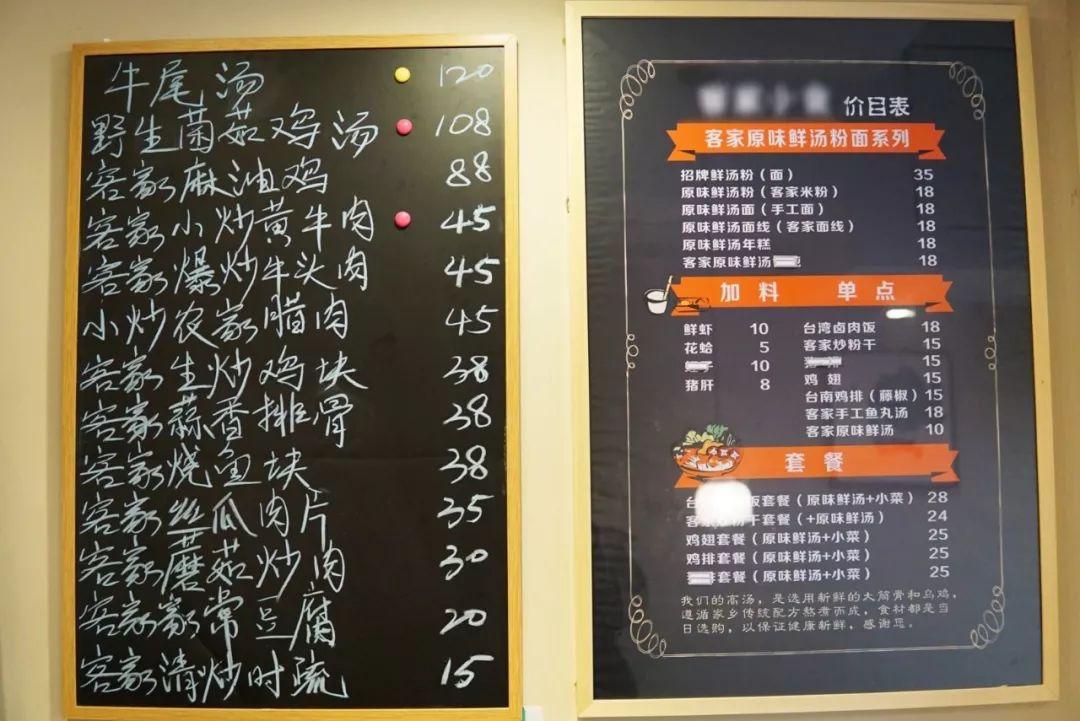 牛尾汤 120
野生菌菇鸡汤 108
客家麻油鸡 88
客家小炒黄牛肉 45
客家爆炒牛头肉 45
小炒农家腊肉 45
客家生炒鸡块 38
客家蒜香排骨 38
客家烧鱼块 38
客家丝瓜肉片 35
客家蘑菇炒肉 30
客家家常豆腐 20
客家清炒时蔬 15
价目表
客家原味鲜汤粉面系列
招牌鲜汤粉（面） 35
原味鲜汤粉（客家米粉） 18
原味鲜汤面（手工面） 18
原味鲜汤面线（客家面线） 18
原味鲜汤年糕 18
客家原味鲜汤 18
加料 单点
鲜虾 10 台湾卤肉饭 18
花蛤 5 客家炒粉干 15
10 15
猪肝 8 鸡翅 15
台南鸡排（藤椒） 15
客家手工鱼丸汤 18
客家原味鲜汤 10
套餐
台 饭套餐（原味鲜汤+小菜） 28
客家 粉干套餐（+原味鲜汤） 24
鸡翅套餐（原味鲜汤+小菜） 25
鸡排套餐（原味鲜汤+小菜） 25
套餐（原味鲜汤+小菜） 25
我们的高汤，是选用新鲜的大筒骨和乌鸡，
遵循家乡传统配方熬煮而成，食材都是当
日选购，以保证健康新鲜，感谢您。